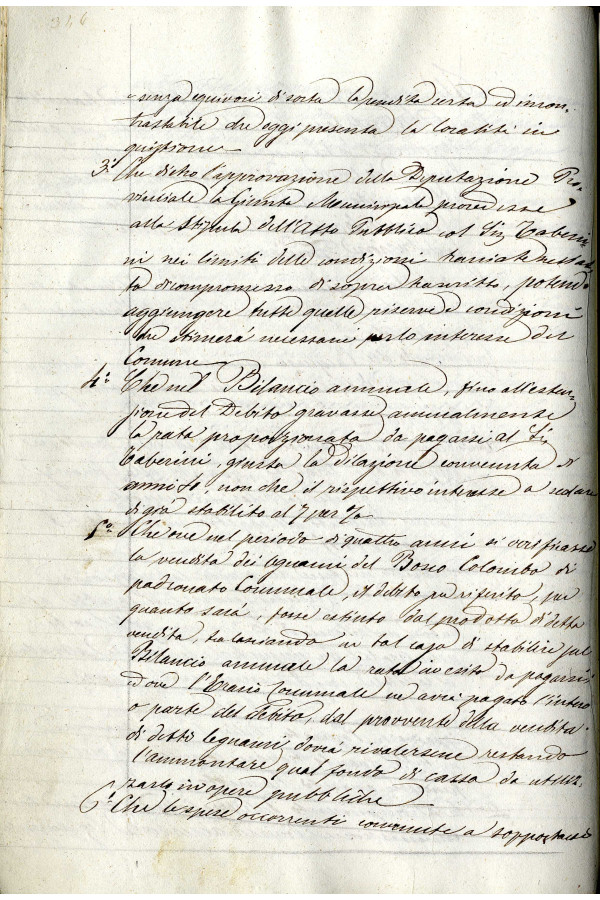 316
senza equivoci di sorta la rendita certa ed incon-
trastabile che oggi presenta la località in
quistione
3º Che dietro l'approvazione della Deputazione Pro-
vinciale la Giunta Municipale procedesse
alla Stipula dell'Atto Pubblico col Sig. Taberi-
ni nei limiti delle condizioni
di compromesso di sopra trascritto, potendo
aggiungere tutte quelle riserve e condizioni
che stimerà necessarie per lo interesse del
Comune
4º Che nel Bilancio annuale, fino all'estin-
zione del Debito gravasse annualmente
la rata proporzionata da pagarsi al Sig.
Taberini, giusta la dilazione convenuta di
anni 10, non che il rispettivo interesse a scalare
di già stabilito al 7 per %
5º Che ove nel periodo di quattro anni si verificasse
la vendita dei legnami del Bosco Colombo di
padronato Comunale, il debito pre riferito, per
quanto sarà, fosse estinto dal prodotto di detta
vendita, tralasciando in tal caso di stabilire sul
Bilancio annuale la rata da pagarsi
e dove l'Erario Comunale ne avrà pagato l'intero
o parte del debito, dal provvento della vendita
di detti legnami dovrà rivalersene restando
l'ammontare qual fondo di cassa da utiliz-
zarlo in opere pubbliche
6º Che le spese occorrenti convenute a sopportarsi